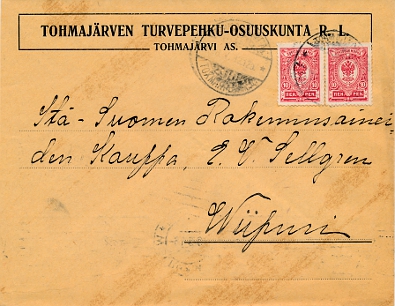 TOHMAJÄRVEN TURVEPEHKU-OSUUSKUNTA R. L.
TOHMAJÄRVI AS.
10 10
PEN. PEN.
Itä-Suomen Rakennusainei-
den Kauppa, E. V. Sellgren
Wiipuri